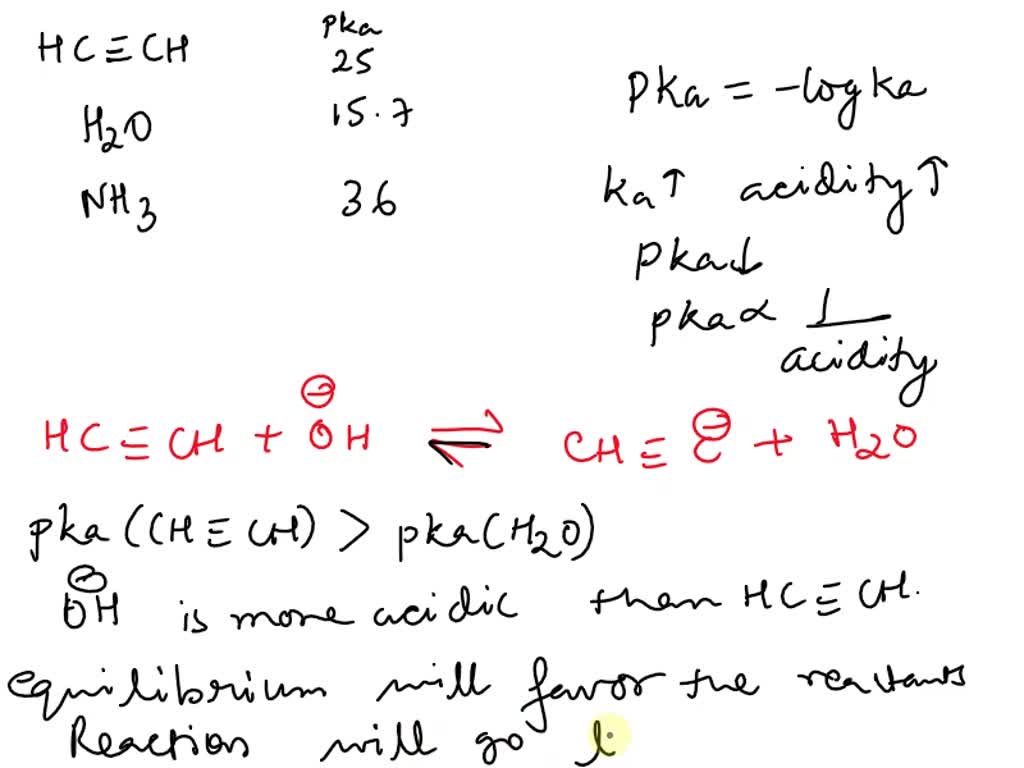 pka
HC≡CH 25
H₂O 15.7
NH₃ 36
pKa = -log ka
ka↑ acidity↑
pka↓
pka ∝ 1/acidity
HC≡CH + ⊖OH ⇌ CH≡C⊖ + H₂O
pka (CH≡CH) > pka (H₂O)
⊖OH is more acidic than HC≡CH.
equilibrium will favor the reactants
Reaction will go l